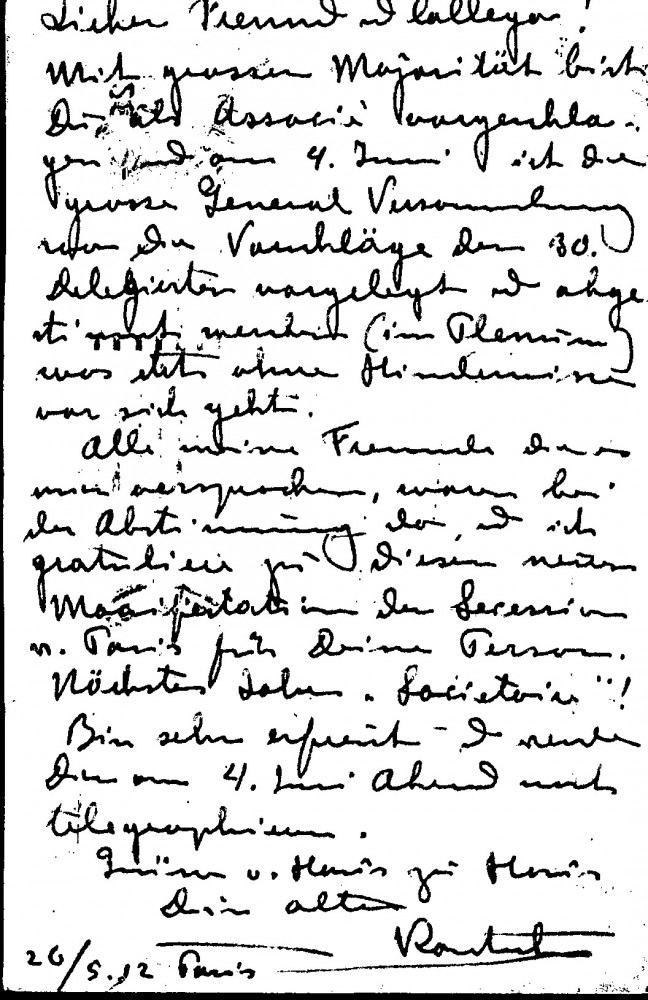 Lieber Freund u Collega!
Mit grosser Majorität bist
Du als Associé vorgeschla-
gen und am 4. Juni ist die
grosse General Versammlung
wo die Vorschläge den 30.
Delegierten vorgelegt u abge
stimmt werden (im Plenum)
was stets ohne Hindernisse
vor sich geht.
Alle meine Freunde die es
mir versprochen, waren bei
der Abstimmung da, u ich
gratuliere zu diesem neuen
Manifestation der Secession
v. Paris für Deine Person.
Nächstes Jahr "Societaire"!
Bin sehr erfreut - u werde
Dir am 4. Juni Abend noch
telegraphieren.
Grüsse v. Haus zu Haus
Dein alter
26/5.12 Paris